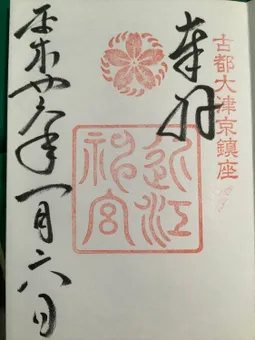 古都大津京鎮座
奉拝
近江神宮
平成廿八年一月六日